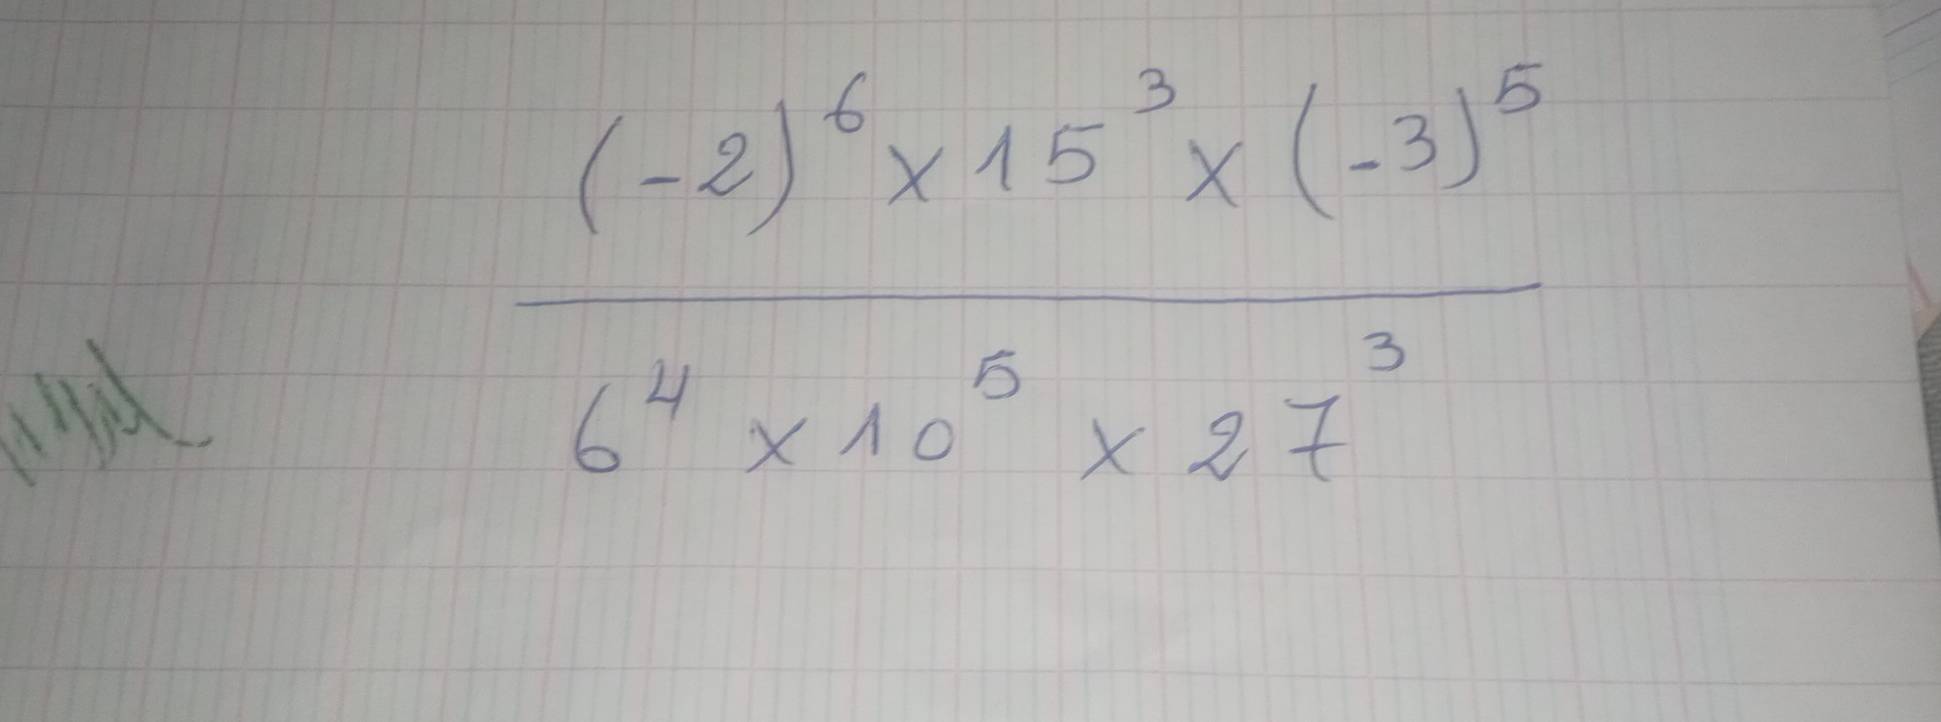 (-2)^6 × 15^3 × (-3)^5
6^4 × 10^5 × 27^3